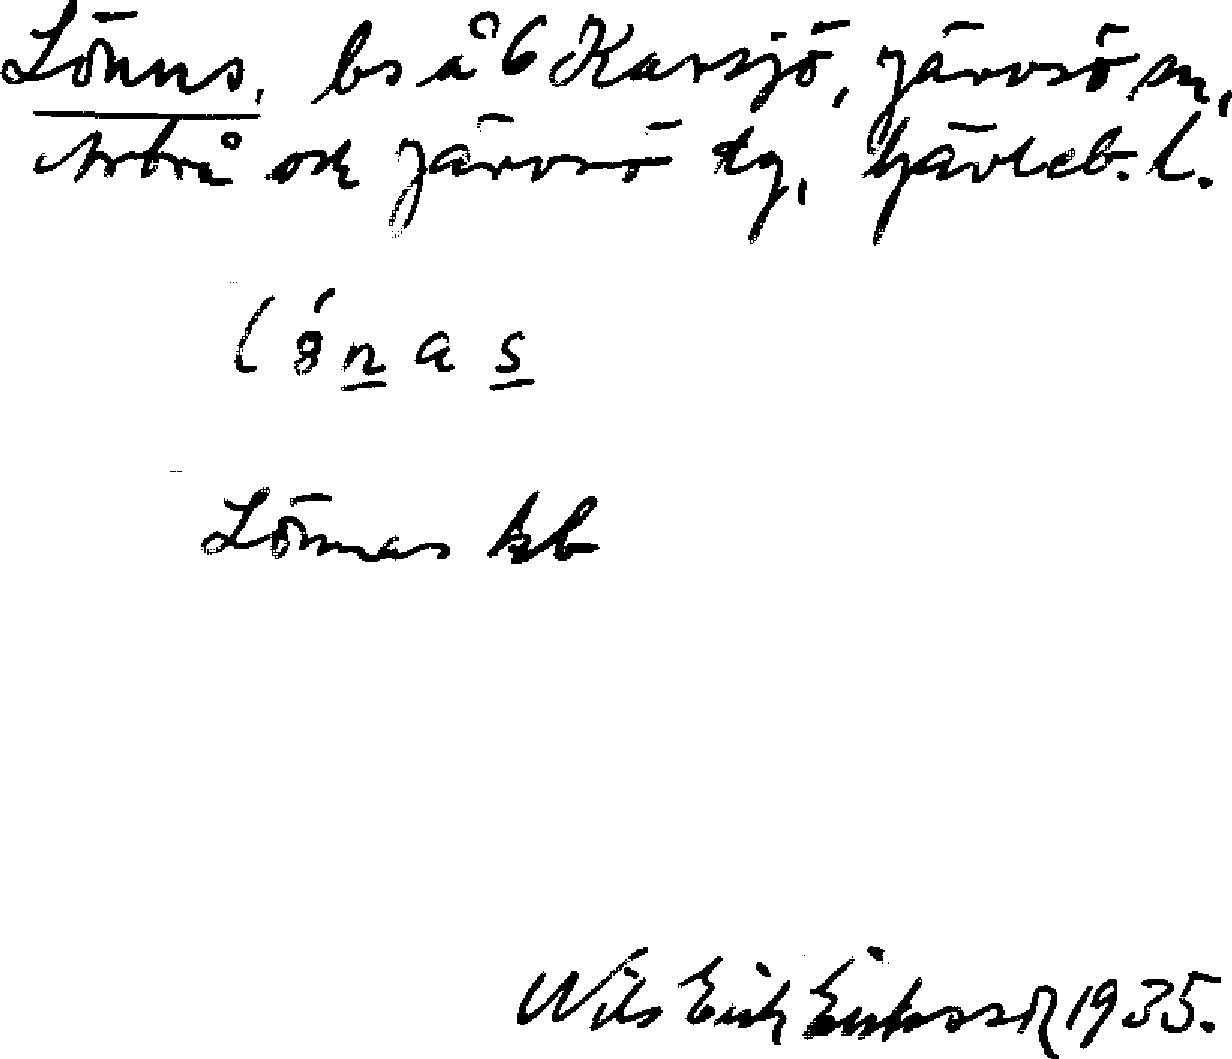 Lönns, bs å 6 Karsjö, Järvsö sn,
Arbrå och Järvsö tg, Gävleb. l.
lö́nas
Lönnas kb
Nils Erik Eriksson 1935.